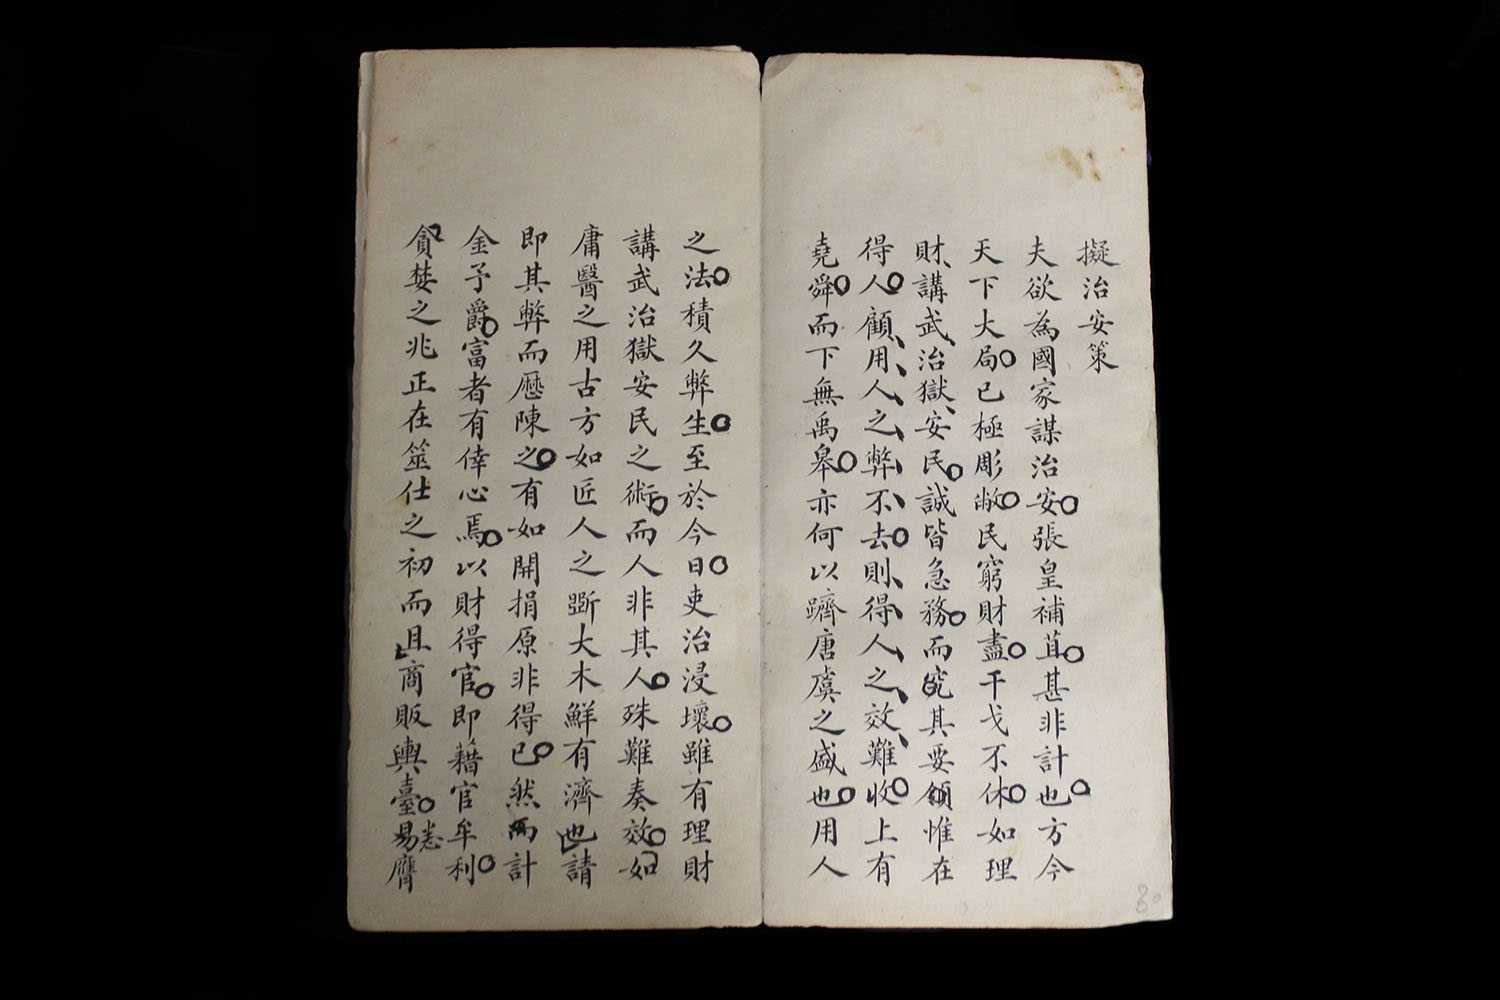 擬治安策
夫欲為國家謀治安張皇補苴甚非計也方今
天下大局已極彫敝民窮財盡干戈不休如理
財講武治獄安民誠皆急務而究其要領惟在
得人顧用人之弊不去則得人之效難收上有
堯舜而下無禹皋亦何以躋唐虞之盛也用人
之法積久弊生至於今日吏治浸壞雖有理財
講武治獄安民之術而人非其人殊難奏效如
庸醫之用古方如匠人之斲大木鮮有濟也請
即其弊而歷陳之有如開捐原非得已然而計
金予爵富者有倖心焉以財得官即藉官牟利
貪婪之兆正在筮仕之初而且商販輿臺悉易膺
30